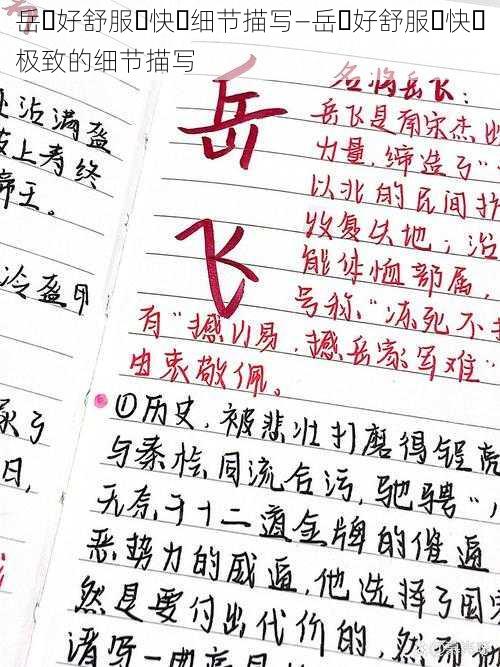 岳好舒服快细节描写—岳好舒服快
极致的细节描写
沾满盔
上寿终
帝王。
冷盔甲
日,
岳
飞
名将岳飞:
岳飞是南宋杰出
力量,缔造了“
以北的民间抗
收复失地;治
能体恤部属,
号称“冻死不
有“撼山易,撼岳家军难”
由衷敬佩。
①历史,被悲壮打磨得锃亮
与秦桧同流合污,驰骋“,
无奈于十二道金牌的催逼
恶势力的威逼,他选择了因
然是要付出代价的,然而
谱写一曲